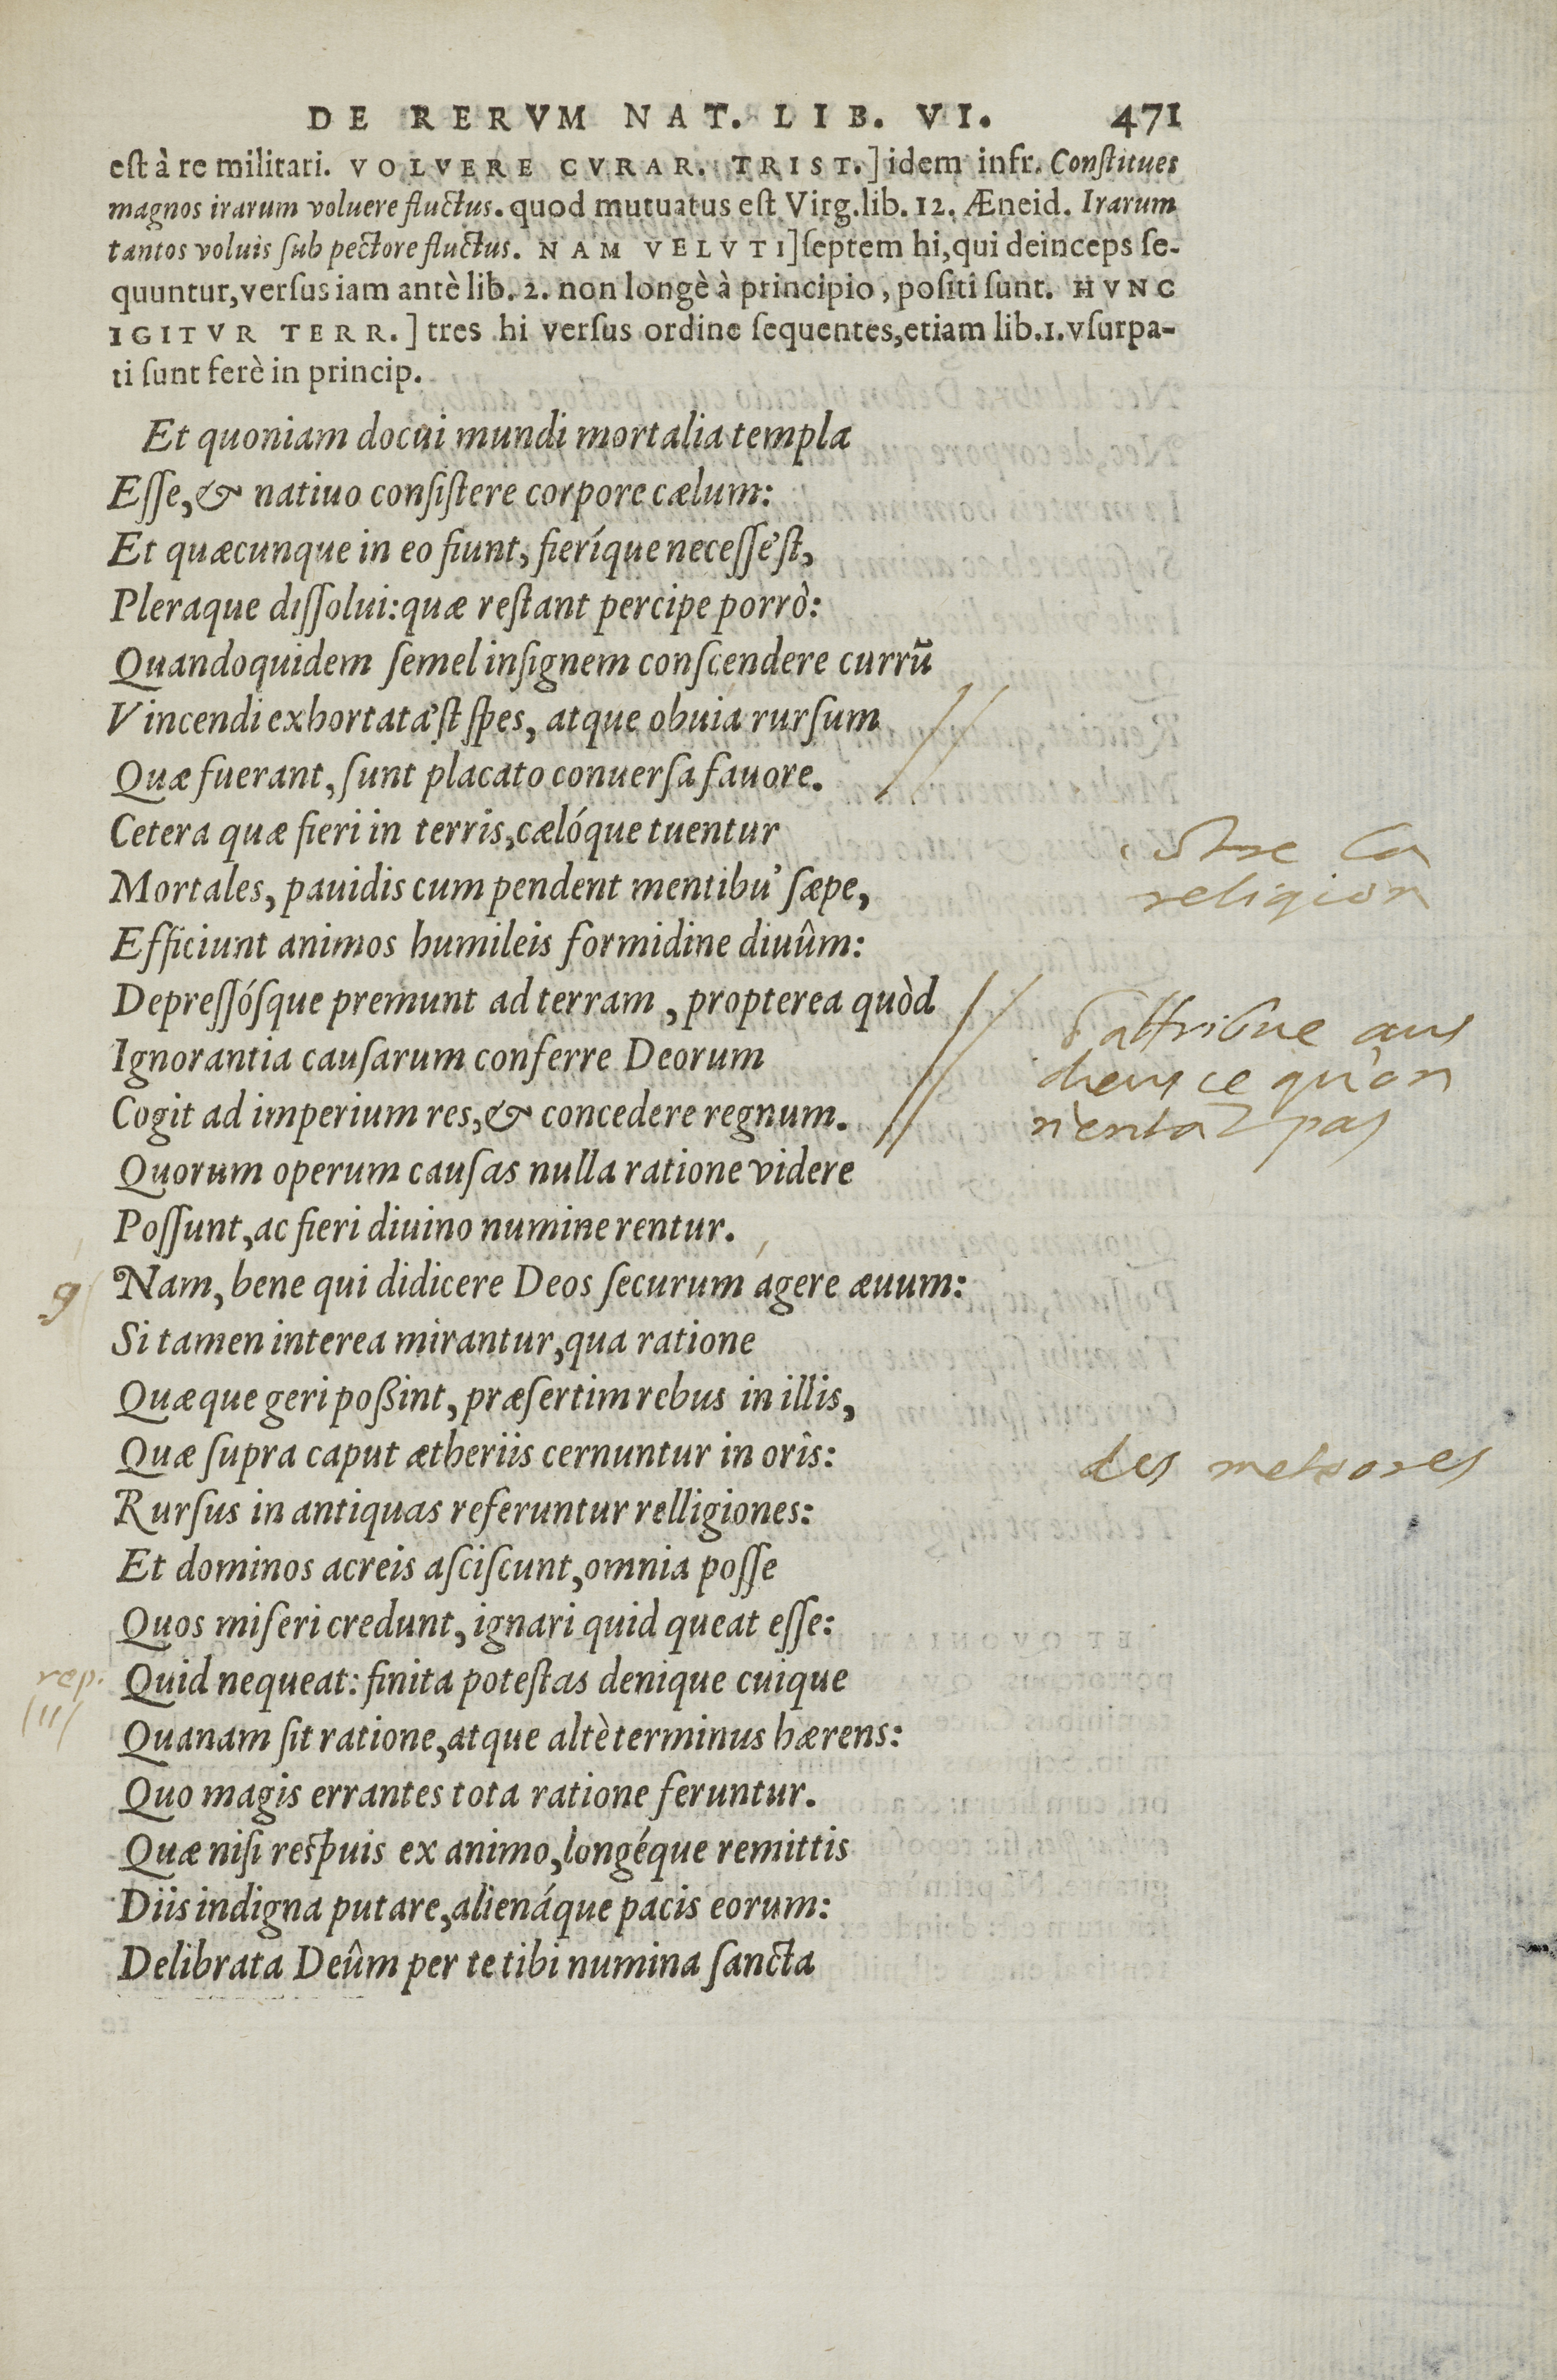 DE RERVM NAT. LIB. VI. 471
est à re militari. VOLVERE CVRAR. TRIST.] idem infr. Constitues
magnos irarum voluere fluctus. quod mutuatus est Virg. lib. 12. Æneid. Irarum
tantos voluis sub pectore fluctus. NAM VELVTI] septem hi, qui deinceps se-
quuntur, versus iam antè lib. 2. non longè à principio, positi sunt. HVNC
IGITVR TERR.] tres hi versus ordine sequentes, etiam lib. 1. vsurpa-
ti sunt ferè in princip.
Et quoniam docui mundi mortalia templa
Esse, & natiuo consistere corpore cælum:
Et quæcunque in eo fiunt, fieríque necesse'st,
Pleraque dissolui: quæ restant percipe porrò:
Quandoquidem semel insignem conscendere currū
Vincendi exhortata'st spes, atque obuia rursum
Quæ fuerant, sunt placato conuersa fauore.
Cetera quæ fieri in terris, cælóque tuentur
Mortales, pauidis cum pendent mentibu' sæpe,
Efficiunt animos humileis formidine diuûm:
Depressósque premunt ad terram, propterea quòd
Ignorantia causarum conferre Deorum
Cogit ad imperium res, & concedere regnum.
Quorum operum causas nulla ratione videre
Possunt, ac fieri diuino numine rentur.
Nam, bene qui didicere Deos securum agere æuum:
Si tamen interea mirantur, qua ratione
Quæque geri poßint, præsertim rebus in illis,
Quæ supra caput ætheriis cernuntur in oris:
Rursus in antiquas referuntur relligiones:
Et dominos acreis asciscunt, omnia posse
Quos miseri credunt, ignari quid queat esse:
Quid nequeat: finita potestas denique cuique
Quanam sit ratione, atque altè terminus hærens:
Quo magis errantes tota ratione feruntur.
Quæ nisi respuis ex animo, longéque remittis
Diis indigna putare, alienáque pacis eorum:
Delibrata Deûm per te tibi numina sancta
la
religion
attribue aus
dieus ce qu'on
n'entat pas
des meteores
rep.